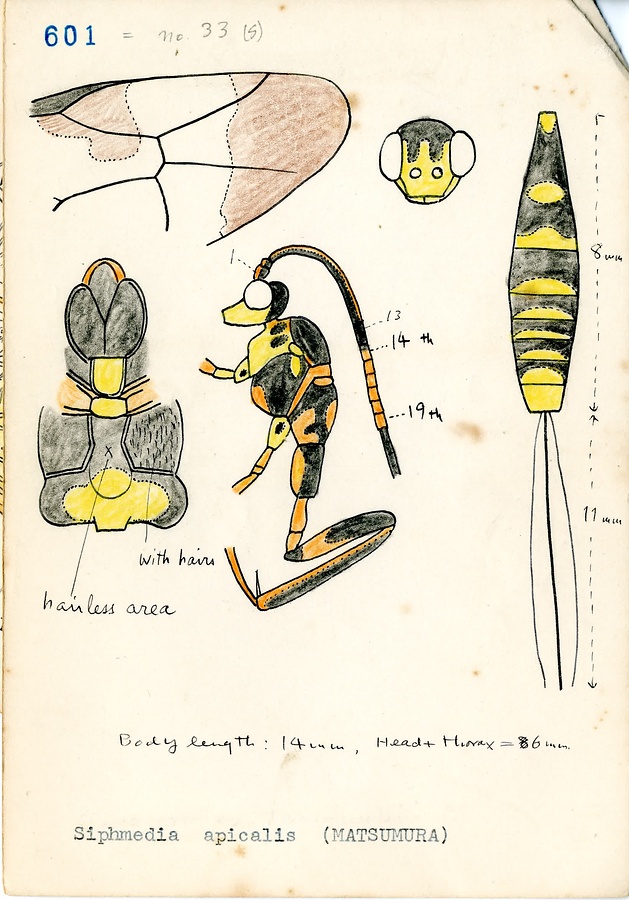 601 = no. 33 (5)
1
8mm
13
14 th
19th
x
11mm
with hairs
hairless area
Body length: 14mm, Head+thorax = 6mm
Siphmedia apicalis (MATSUMURA)